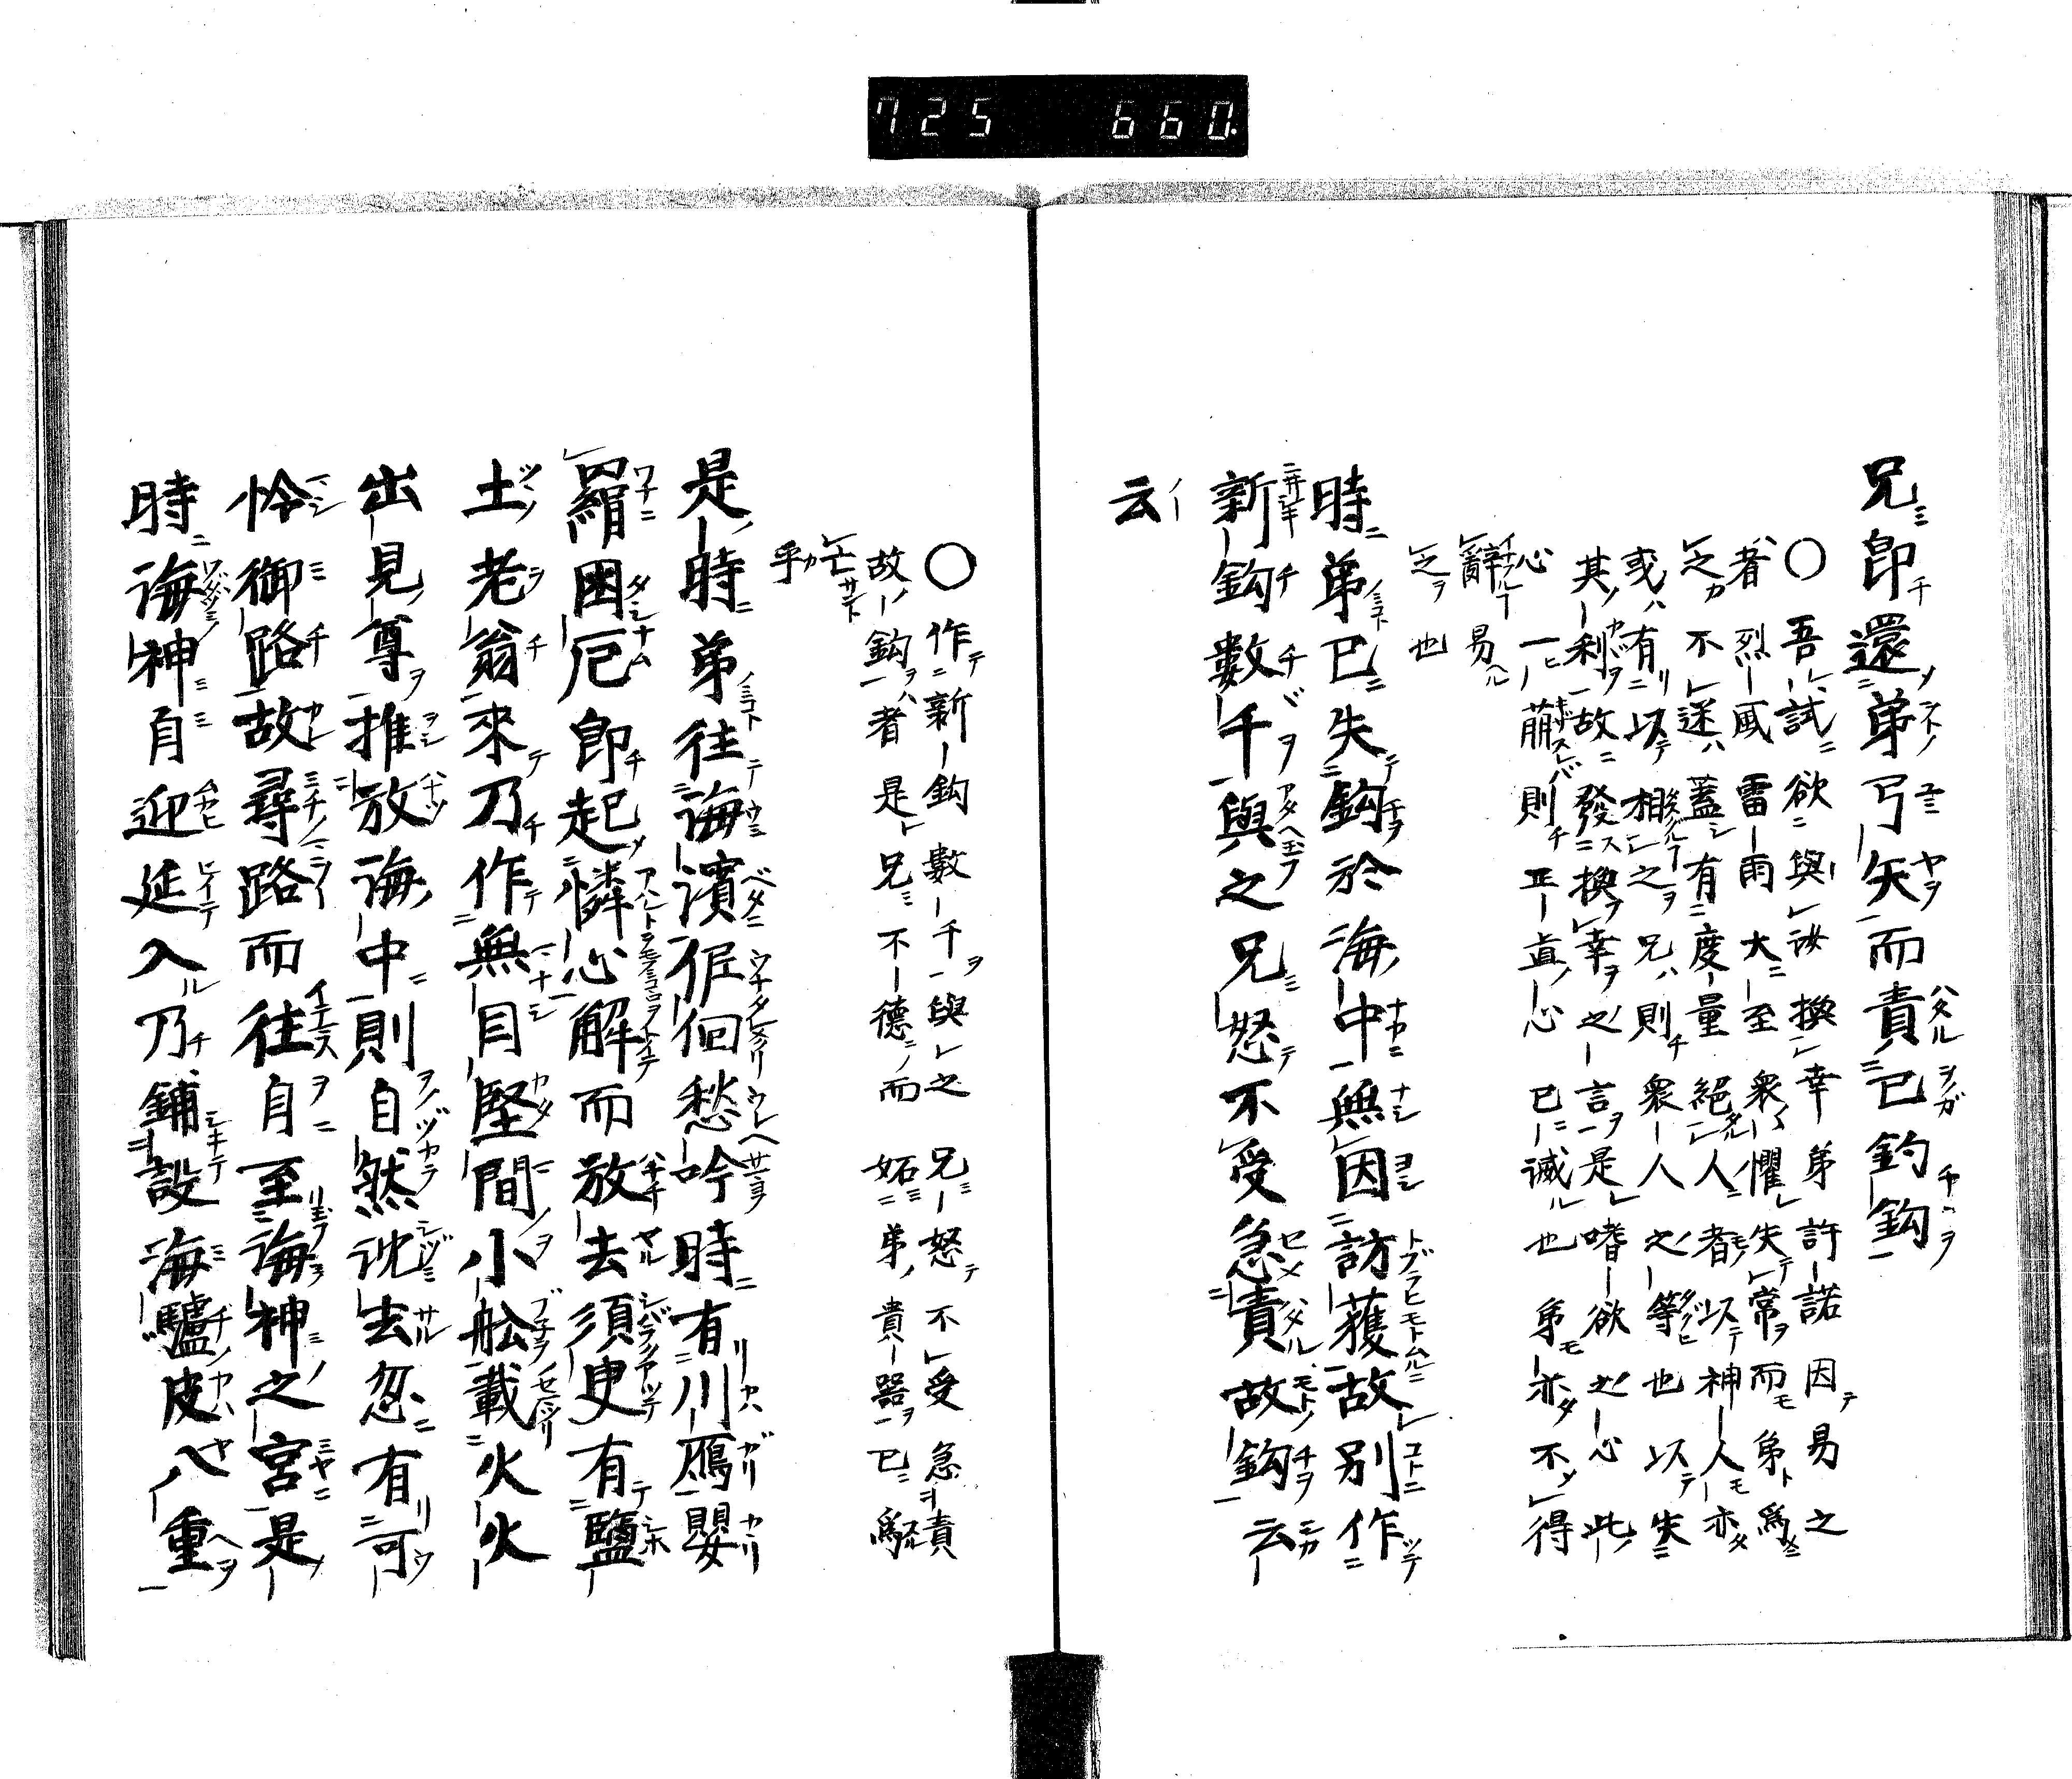 725 660.
兄即還弟弓矢而責己釣鈎
○吾試欲與汝換幸弟許諾因易之
者烈風雷雨大至衆懼失常而弟爲
之不迷蓋有度量絕人者以神人亦
或有以相之兄則衆人之等也以失
其利故發換幸之言是嗜欲之心此
心一萠則正直心已滅也弟亦不得
辭易
之也
時弟已失鈎於海中無因訪獲故別作
新鈎數千與之兄怒不受急責故鈎云
云
○作新鈎數千與之兄怒不受急責
故鈎者是兄不德而妬弟貴器已
亡乎
是時弟往海濱低佪愁吟時有川鴈嬰
羂困厄即起憐心解而放去須臾有鹽
土老翁來乃作無目堅間小舩載火火
出見尊推放海中則自然沈去忽有可
怜御路故尋路而往自至海神之宮是
時海神自迎延入乃鋪設海驢皮八重